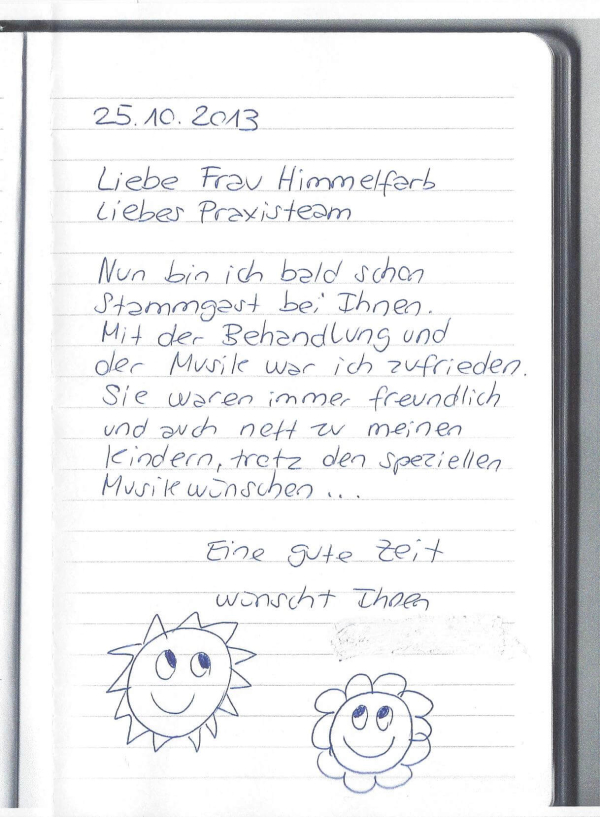 25.10.2013
Liebe Frau Himmelfarb
Liebes Praxisteam
Nun bin ich bald schon
Stammgast bei Ihnen.
Mit der Behandlung und
der Musik war ich zufrieden.
Sie waren immer freundlich
und auch nett zu meinen
Kindern, trotz den speziellen
Musikwünschen...
Eine gute Zeit
wünscht Ihnen